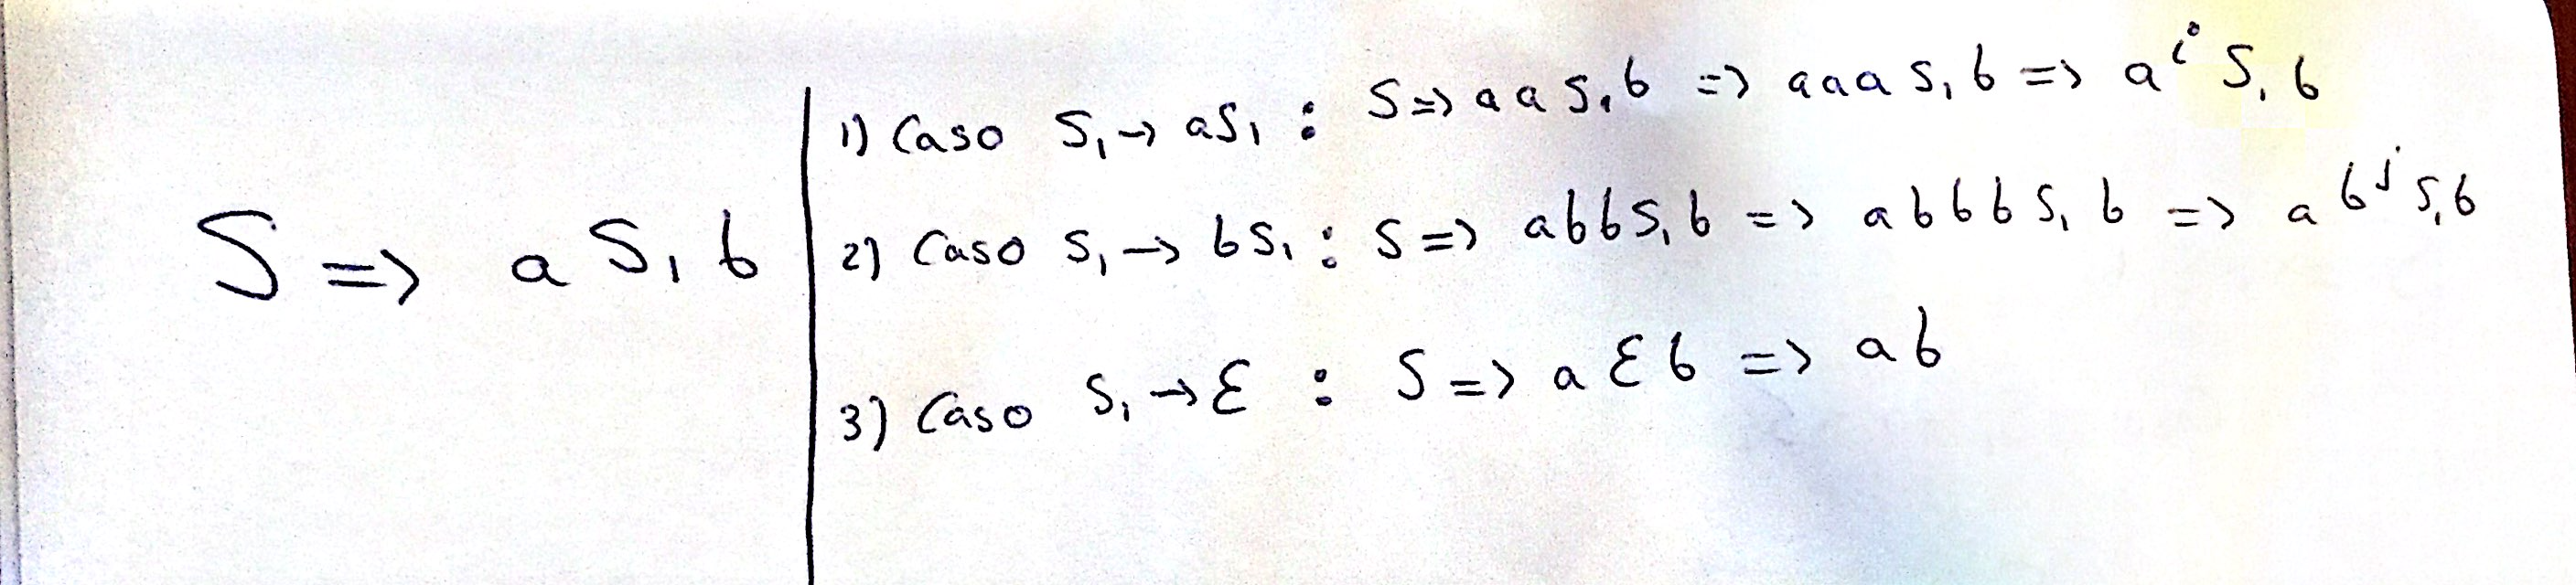 S => a S₁ b
1) Caso S₁ → aS₁ : S => a a S₁ b => a a a S₁ b => aⁱ S₁ b
2) Caso S₁ → bS₁ : S => abbS₁b => abbbS₁b => a bʲ S₁b
3) Caso S₁ → Ɛ : S => a Ɛ b => ab